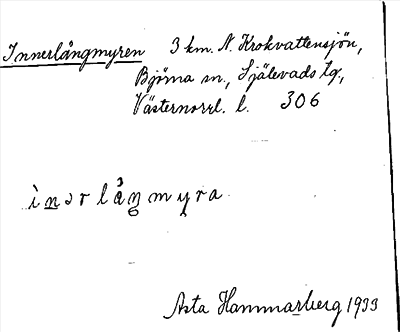 Innerlångmyren 3 km. N. Krokvattensjön,
Björna sn., Själevads tg.,
Västernorrl. l. 306
ìnərlåŋmyra
Asta Hammarberg 1933